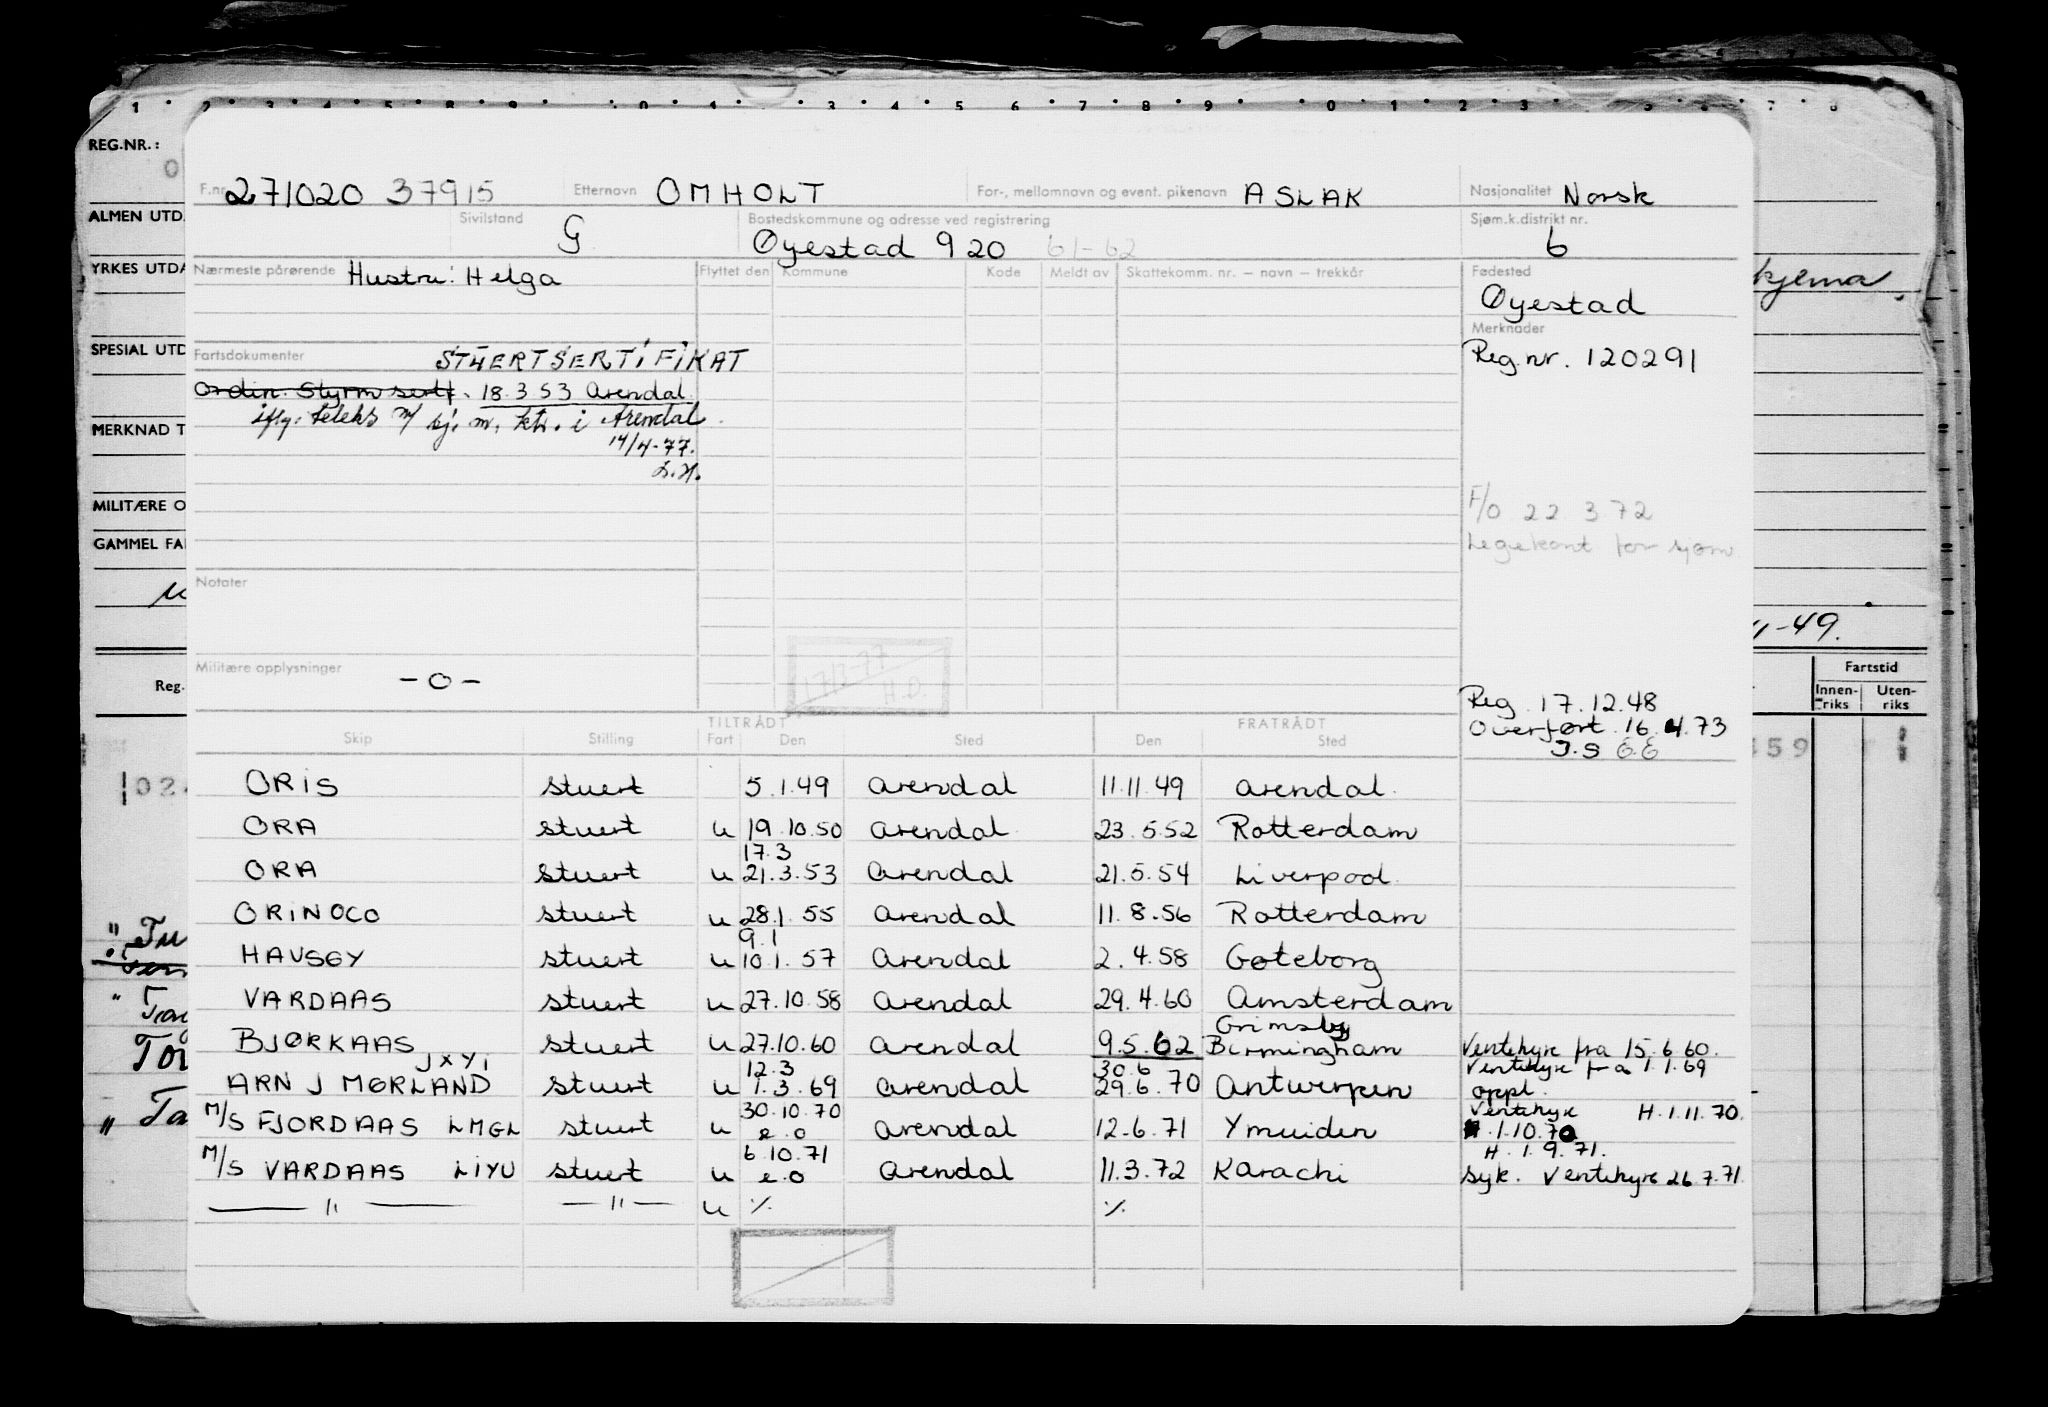 1 2 3 4 5 8 9 0 1 3 4 5 6 7 8 9 0 1 2 3 7 8
REG.NR.:
0
F.nr. 271020 37915 Etternavn OMHOLT For-, mellomnavn og event. pikenavn ASLAK Nasjonalitet Norsk
ALMEN UTD. Sivilstand G Bostedskommune og adresse ved registrering Øyestad 920 61-62 Sjøm.k.distrikt nr. 6
YRKES UTDA Nærmeste pårørende Hustru: Helga Flyttet den Kommune Kode Meldt av Skattekomm. nr. — navn — trekkår Fødested kjema.
Øyestad
Merknader
SPESIAL UTD Fartsdokumenter STUERTSERTIFIKAT Reg.nr. 120291
Ordin. Styrm sertf. 18.3 53 Arendal
iflg. teleks m/ sj. m. ktr. i Arendal
MERKNAD T 14/4-77.
MILITÆRE O F/O 22 3 72
GAMMEL FA Legekont for sjøm
Notater
11-49.
17/3-77
H.D.
Militære opplysninger - o -
Reg. Reg. 17.12.48 Fartstid
Overført 16.4.73 Innenriks Utenriks
J.S 66
TILTRÅDT FRATRÅDT
Skip Stilling Fart Den Sted Den Sted
459
102
ORIS stuert 5.1.49 Arendal 11.11.49 Arendal.
ORA stuert u 19.10.50 Arendal 23.5.52 Rotterdam
17.3
ORA stuert u 21.3.53 Arendal 21.5.54 Liverpool.
ORINOCO stuert u 28.1.55 Arendal 11.8.56 Rotterdam
9.1
HAVSEY stuert u 10.1.57 Arendal 2.4.58 Gøteborg
VARDAAS stuert u 27.10.58 Arendal 29.4.60 Amsterdam
Grimsby
BJØRKAAS stuert u 27.10.60 Arendal 9.5.62 Birmingham Ventehyre fra 15.6 60.
JXYI 12.3 30.6 Ventehyre fra 1.1.69
ARN J MØRLAND stuert u 1.3.69 Arendal 29.6.70 Antwerpen oppl.
30.10.70 Ventehyre H.1.11.70.
M/S FJORDAAS LMGL stuert u e.o Arendal 12.6.71 Ymuiden 1.10.70
6.10.71 H.1.9.71.
M/S VARDAAS LIYU stuert u e.o Arendal 11.3.72 Karachi syk. Ventehyre 26.7.71.
— " — — " — u ٪ ٪